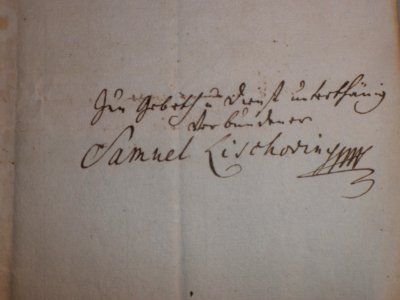 Zum Gebeth u Dienst unterthänig
Verbundener
Samuel Lischoviny